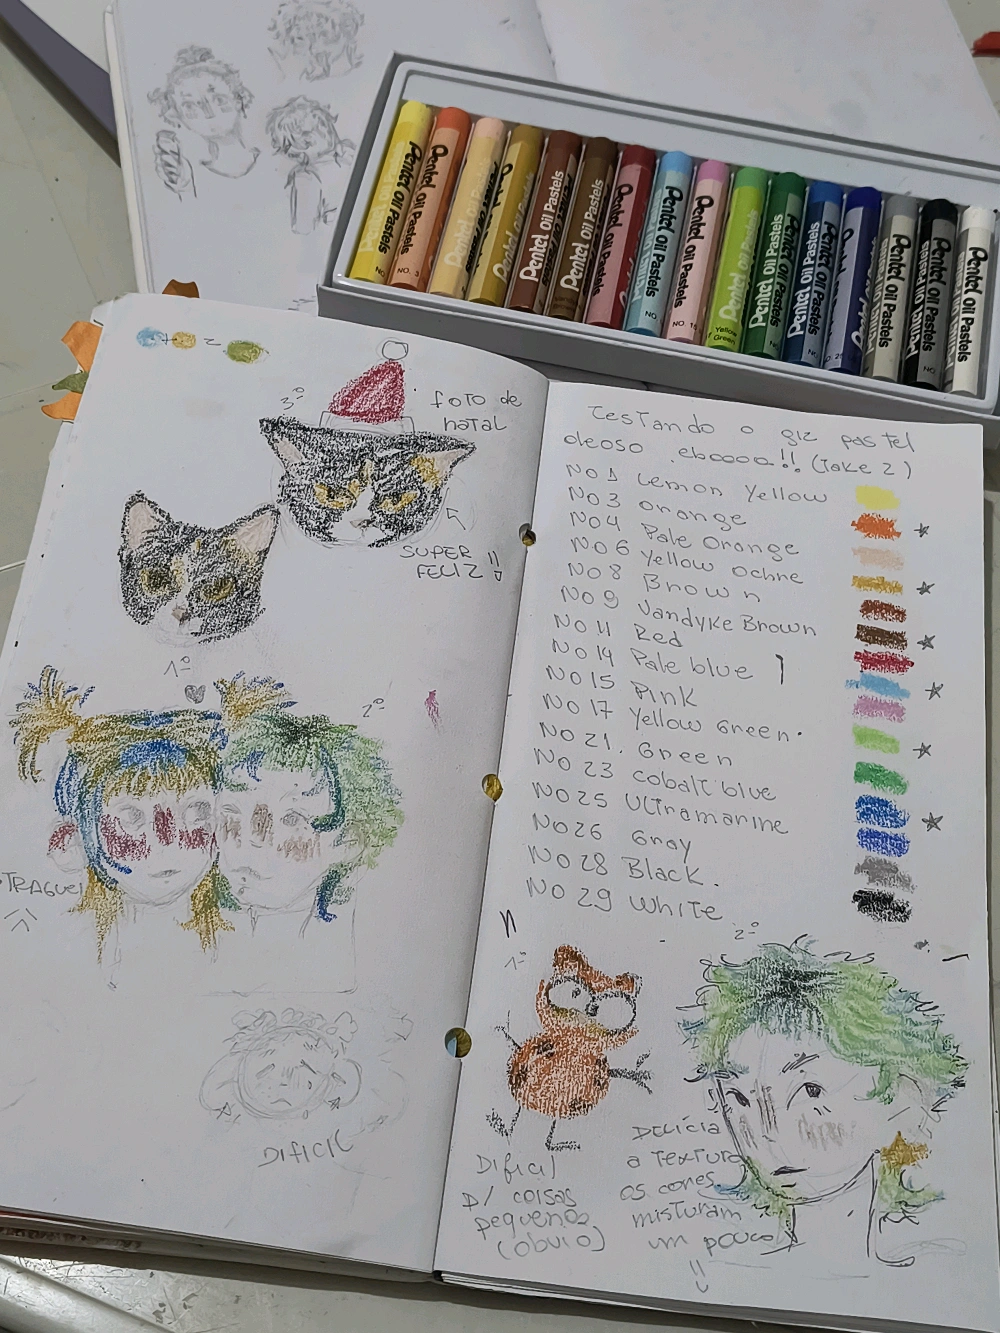 Pentel Oil Pastels
Pentel Oil Pastels
Pentel Oil Pastels
Pentel Oil Pastels
Pentel Oil Pastels
Pentel Oil Pastels
Pentel Oil Pastels
Pentel Oil Pastels
Pentel Oil Pastels
Pentel Oil Pastels
Pentel Oil Pastels
Pentel Oil Pastels
Yellow Green
3º
FOTO DE
NATAL
SUPER
FELIZ!!
1º
2º
TRAGUEI
DIFICIL
TESTANDO O giz pastel
oleoso eboooa!! (Take 2)
NO 1 Lemon Yellow
NO 3 Orange
NO 4 Pale Orange
NO 6 Yellow Ochre
NO 8 Brown
NO 9 Vandyke Brown
NO 11 Red
NO 14 Pale blue
NO 15 Pink
NO 17 Yellow Green
NO 21. Green
NO 23 Cobalt blue
NO 25 Ultramarine
NO 26 Gray
NO 28 Black.
NO 29 White
1º
2º
Dificil
p/ coisas
pequenas
(obvio)
DELICIA
a Textura
os cores
misturam
um pouco